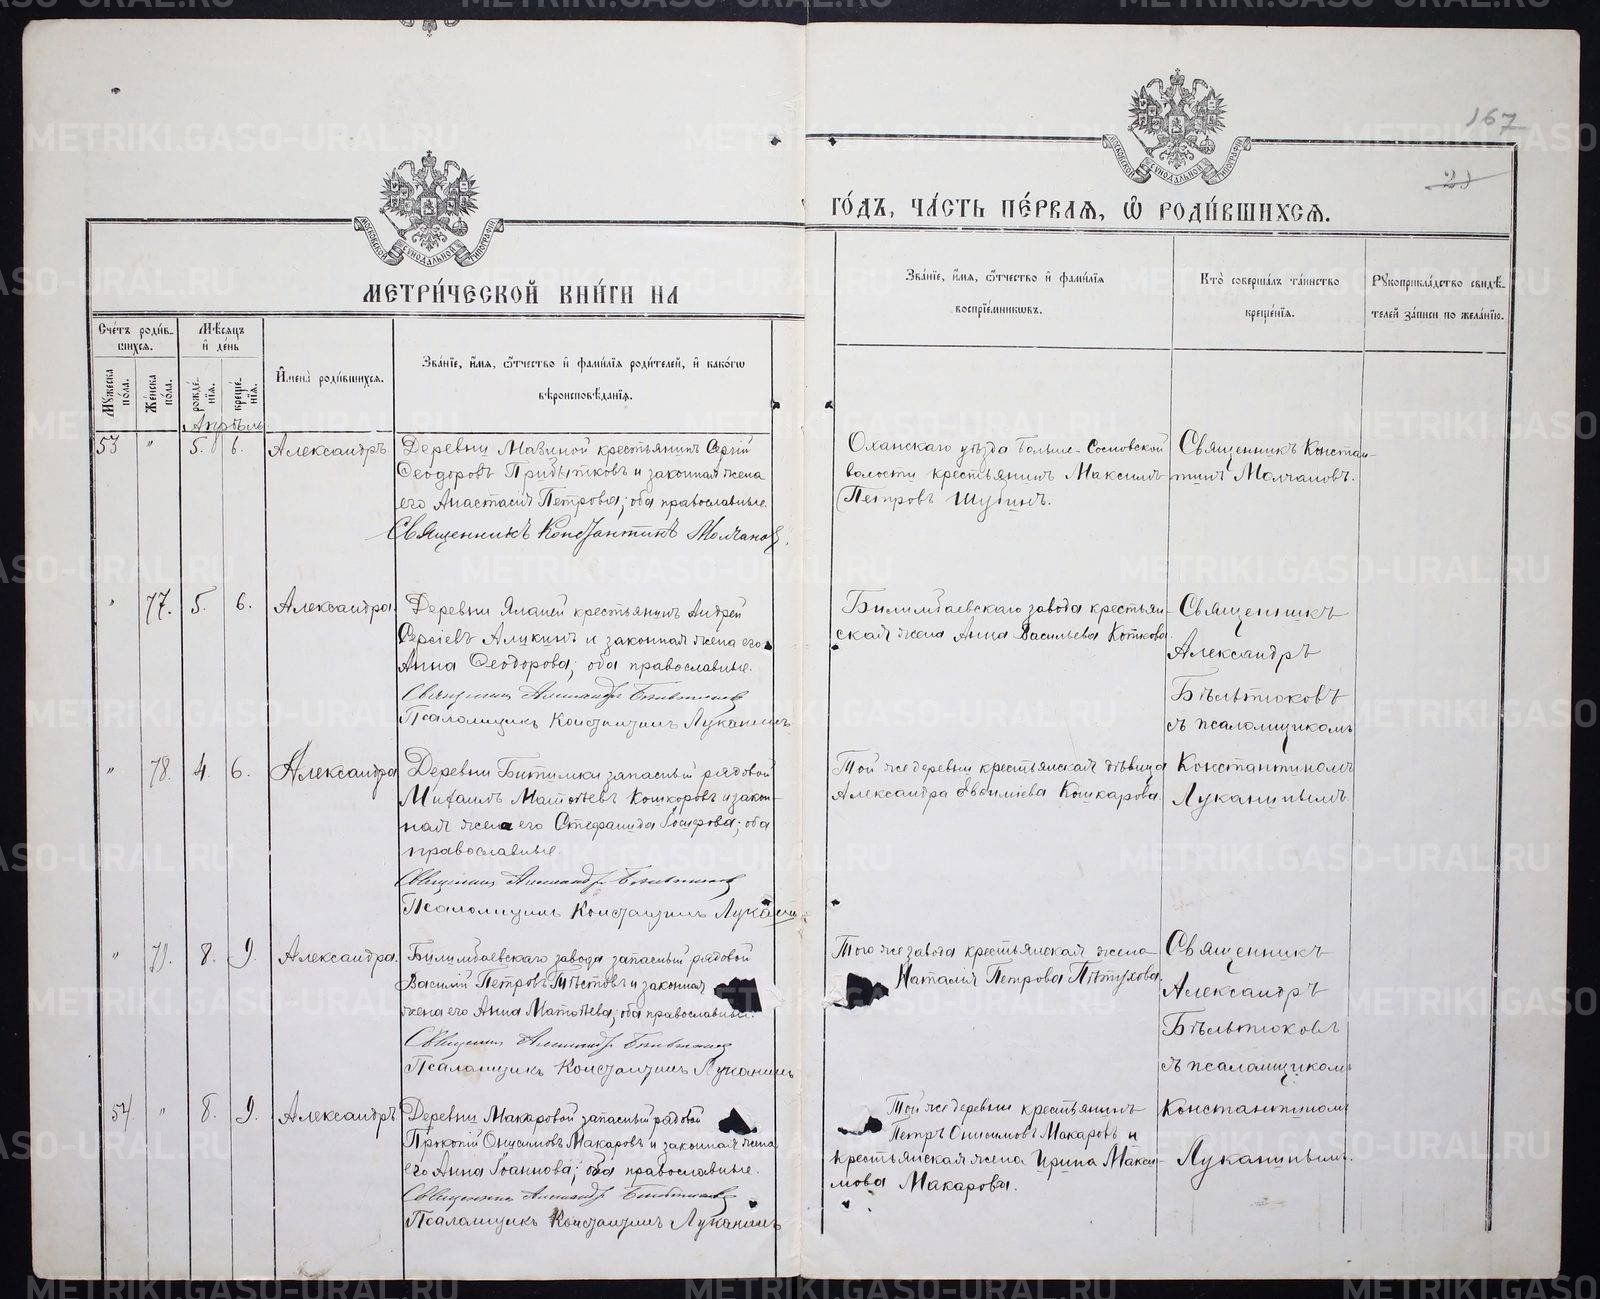 167
МЕТРИ́ЧЕСКОЙ КНИ́ГИ НА
ГО́ДЪ, ЧА́СТЬ ПЕ́РВАѦ, Ѽ РОДИ́ВШИХСѦ.
МОСКОВСКОЙ СѴНОДАЛЬНОЙ ТИПОГРАФІИ
МОСКОВСКОЙ СѴНОДАЛЬНОЙ ТИПОГРАФІИ
Сче́тъ роди́вшихсѧ.
Мꙋ́жеска по́ла.
Же́нска по́ла.
Мѣ́сѧцъ и҆ де́нь
рожде́нїѧ.
креще́нїѧ.
И҆мена̀ роди́вшихсѧ.
Зва́нїе, и҆́мѧ, ѻ҆́тчество и҆ фами́лїѧ роди́телей, и҆ како́гѡ
вѣроисповѣ́данїѧ.
Зва́нїе, и҆́мѧ, ѻ҆́тчество и҆ фами́лїѧ
воспрїе́мникѡвъ.
Кто̀ соверша́лъ та́инство
креще́нїѧ.
Рꙋкоприкла́дство свидѣ́-
телей за́писи по жела́нїю.
Апрѣль
53 " 5. 6. Александръ
Деревни Мазиной крестьянинъ Сергій
Ѳеодоровъ Прибытковъ и законная жена
его Анастасія Петрова; оба православные.
Священникъ Константинъ Молчановъ.
Оханскаго уѣзда Больше-Сосновской
волости крестьянинъ Максимъ
Петровъ Шугинъ.
Священникъ Констан-
тинъ Молчановъ.
" 77. 5. 6. Александра.
Деревни Ялапей крестьянинъ Андрей
Сергіевъ Аликинъ и законная жена его
Анна Ѳеодорова; оба православные.
Священникъ Александръ Бѣльтюковъ
Псаломщикъ Константинъ Луканинъ
Билимбаевскаго завода крестьян-
ская жена Анна Васильева Коткова.
Священникъ
Александръ
Бѣльтюковъ
съ псаломщикомъ
" 78. 4. 6. Александра
Деревни Битимки запасный рядовой
Михаилъ Матѳѣевъ Кошкаровъ и закон-
ная жена его Стефанида Іосифова; оба
православные.
Священникъ Александръ Бѣльтюковъ
Псаломщикъ Константинъ Луканинъ
Той же деревни крестьянская дѣвица
Александра Евѳиміева Кошкарова.
Константиномъ
Луканинымъ.
" 79. 8. 9. Александра.
Билимбаевскаго завода запасный рядовой
Василій Петровъ Пѣстовъ и законная
жена его Анна Матѳѣева; оба православные.
Священникъ Александръ Бѣльтюковъ
Псаломщикъ Константинъ Луканинъ
Того же завода крестьянская жена
Наталія Петрова Пѣтухова.
Священникъ
Александръ
Бѣльтюковъ
съ псаломщикомъ
54 " 8. 9. Александръ.
Деревни Макаровой запасный рядовой
Прокопій Онисимовъ Макаровъ и законная жена
его Анна Іоаннова; оба православные.
Священникъ Александръ Бѣльтюковъ
Псаломщикъ Константинъ Луканинъ
Той же деревни крестьянинъ
Петръ Онисимовъ Макаровъ и
крестьянская жена Ирина Макси-
мова Макарова.
Константиномъ
Луканинымъ.
METRIKI.GASO-URAL.RU